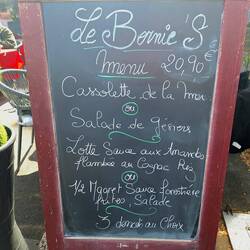 Le Bernic'S
Menu 20,90 €
Cassolette de la Mer
ou
Salade de gésiers
Lotte Sauce aux Amandes
flambée au Cognac Riz
ou
1/2 Magret Sauce forestière
frites, Salade
3 desserts au Choix